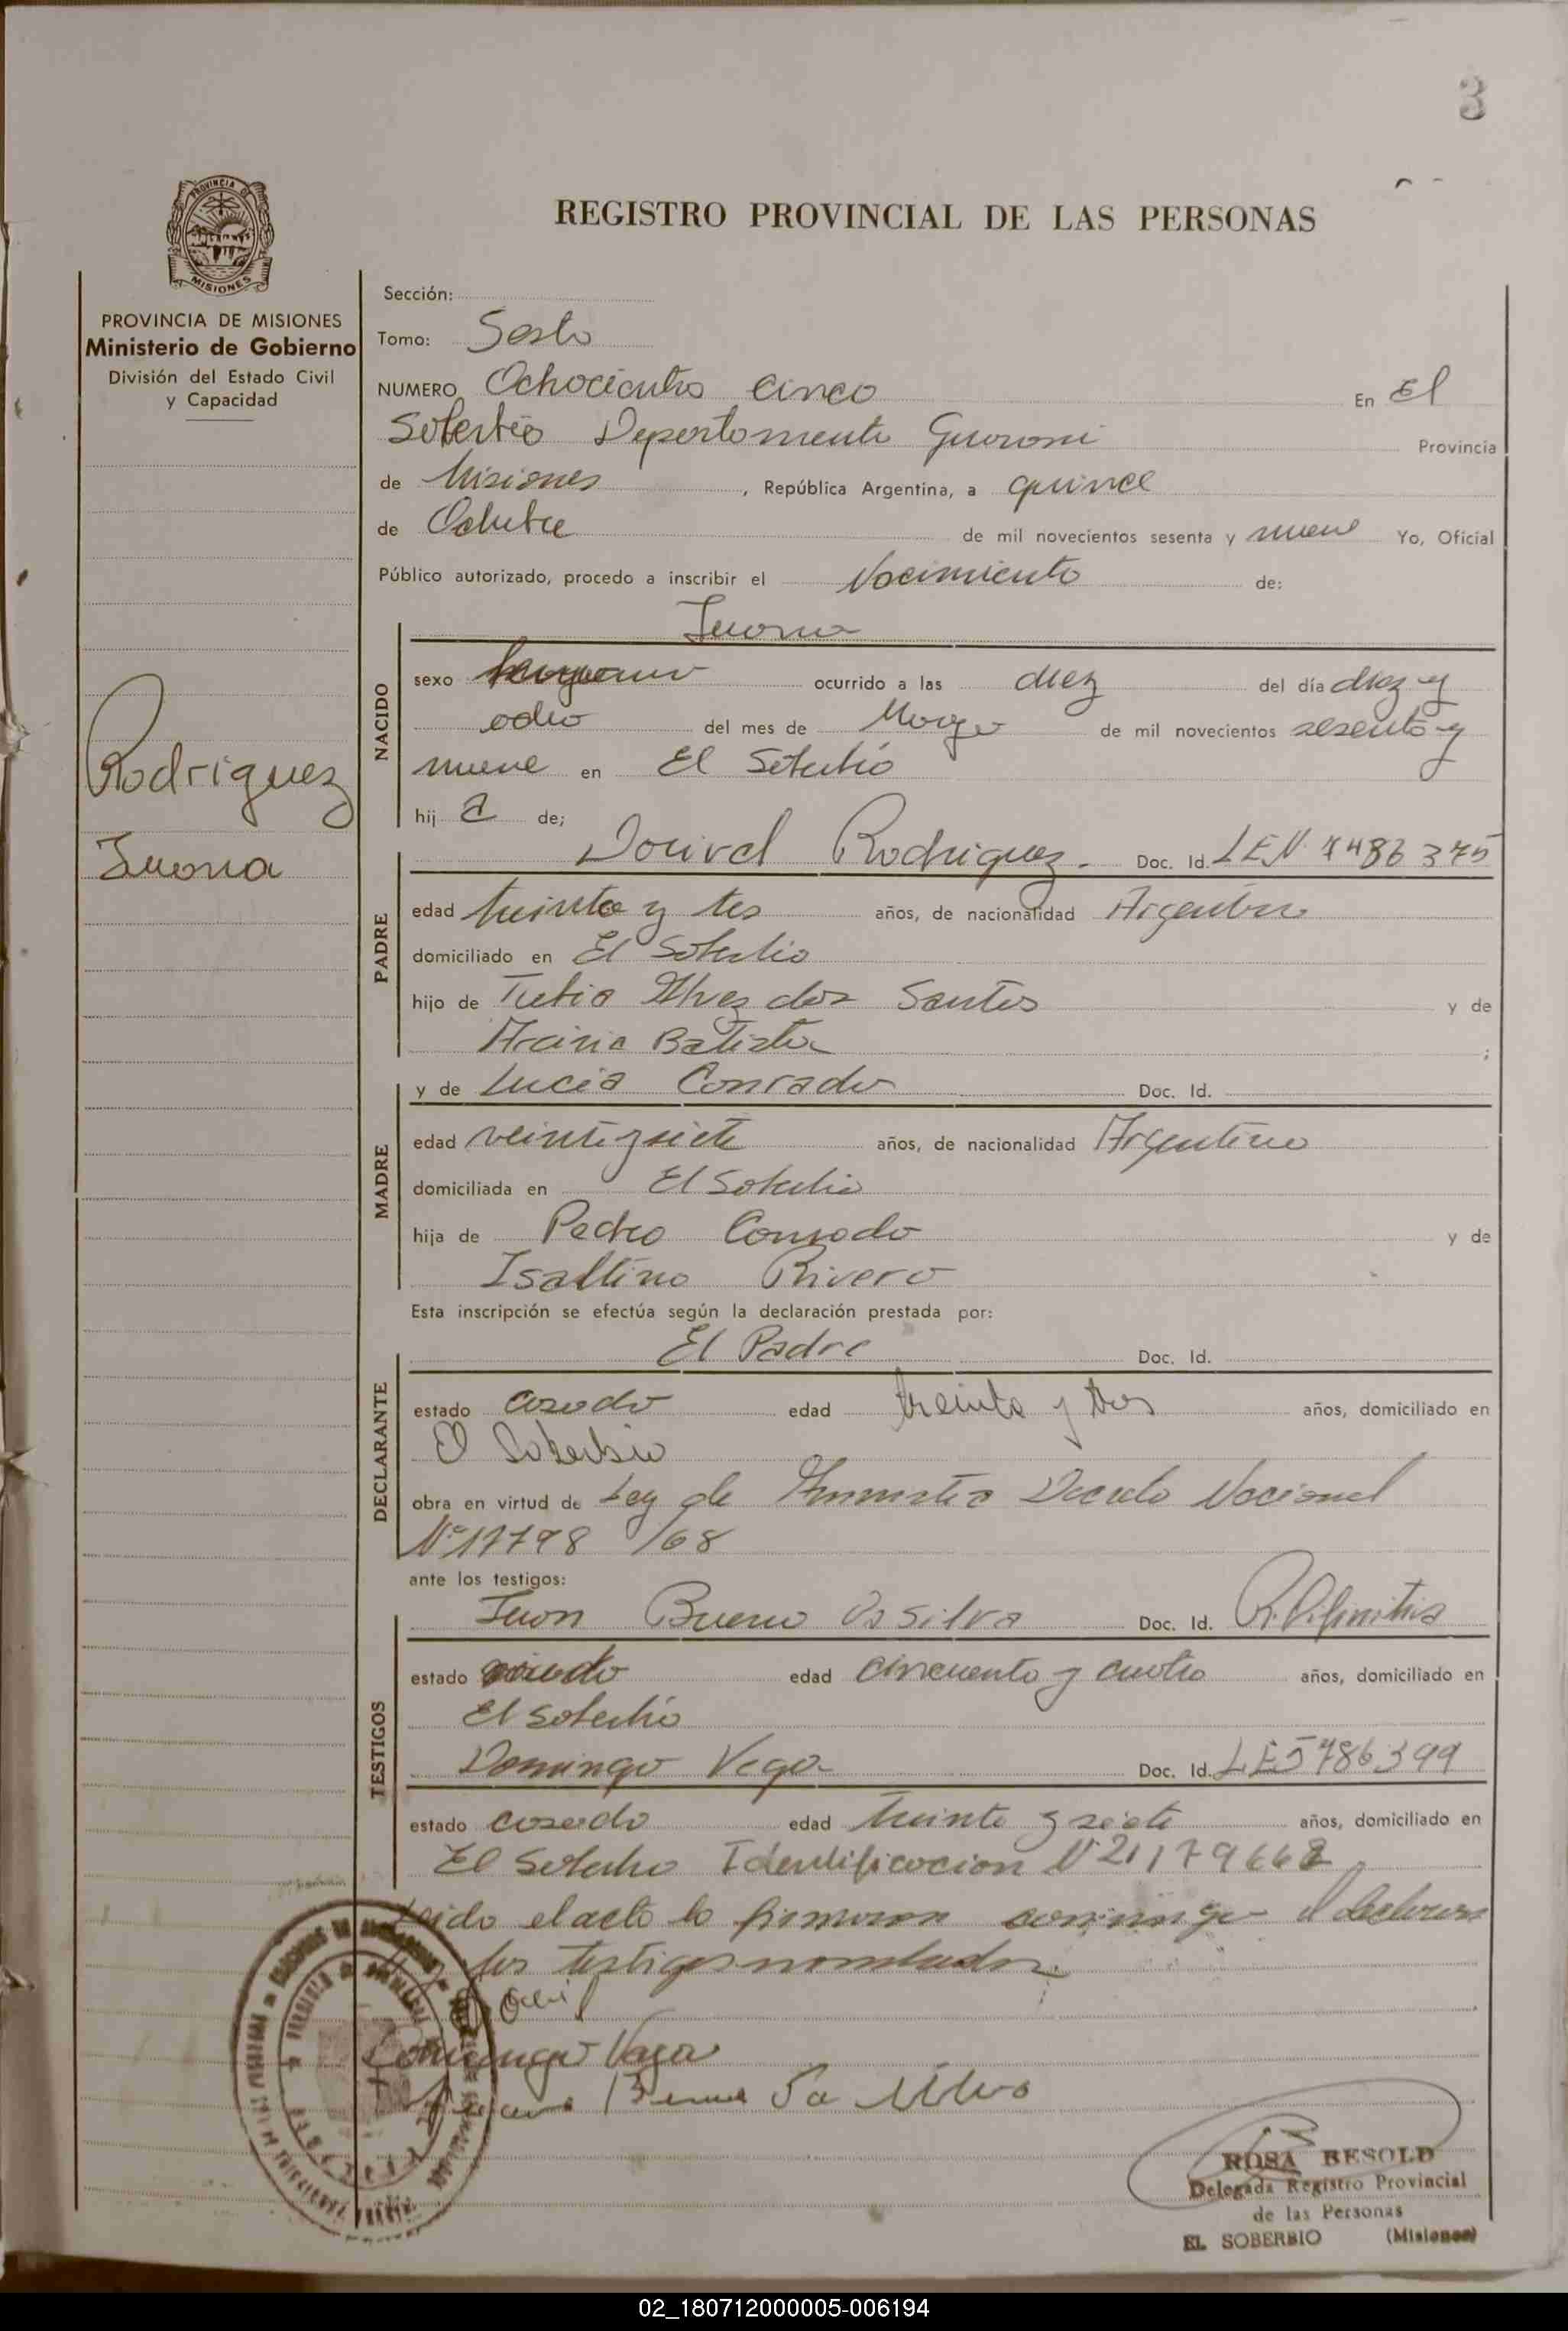 3
REGISTRO PROVINCIAL DE LAS PERSONAS
PROVINCIA DE MISIONES
Ministerio de Gobierno
División del Estado Civil
y Capacidad
Rodriguez
Juana
Sección:
Tomo: Sesto
NUMERO Ochocientos cinco En El
Soberbio Departamento Guarani Provincia
de Misiones, República Argentina, a quince
de Octubre de mil novecientos sesenta y nueve Yo, Oficial
Público autorizado, procedo a inscribir el Nacimiento de:
Juana
NACIDO
sexo ocurrido a las diez del día diez y
ocho del mes de Mayo de mil novecientos sesenta y
nueve en El Soberbio
hij a de;
PADRE
Dorival Rodriguez. Doc. Id. LEN 7486375
edad treinta y tres años, de nacionalidad Argentino
domiciliado en El Soberbio
hijo de Alves dos Santos y de
Batista ;
MADRE
y de Lucia Conrado Doc. Id.
edad veintiysiete años, de nacionalidad Argentina
domiciliada en El Soberbio
hija de Pedro Conrado y de
Isaltina Rivero
Esta inscripción se efectúa según la declaración prestada por:
DECLARANTE
El Padre Doc. Id.
estado casado edad treinta y tres años, domiciliado en
El Soberbio
obra en virtud de Ley de Amnistia Decreto Nacional
Nº 17798 /68
ante los testigos:
TESTIGOS
Juan Bueno Da Silva Doc. Id.
estado viudo edad cincuenta y cuatro años, domiciliado en
El Soberbio
Domingo Vega Doc. Id. LE5786399
estado casado edad treinta y siete años, domiciliado en
El Soberbio Identificacion Nº 21179668
Leido el acta la firmaron conmigo el declarante
los testigos nombrados.
Domingo Vega
Bueno Da Silva
ROSA BESOLD
Delegada Registro Provincial
de las Personas
EL SOBERBIO (Misiones)
02_180712000005-006194